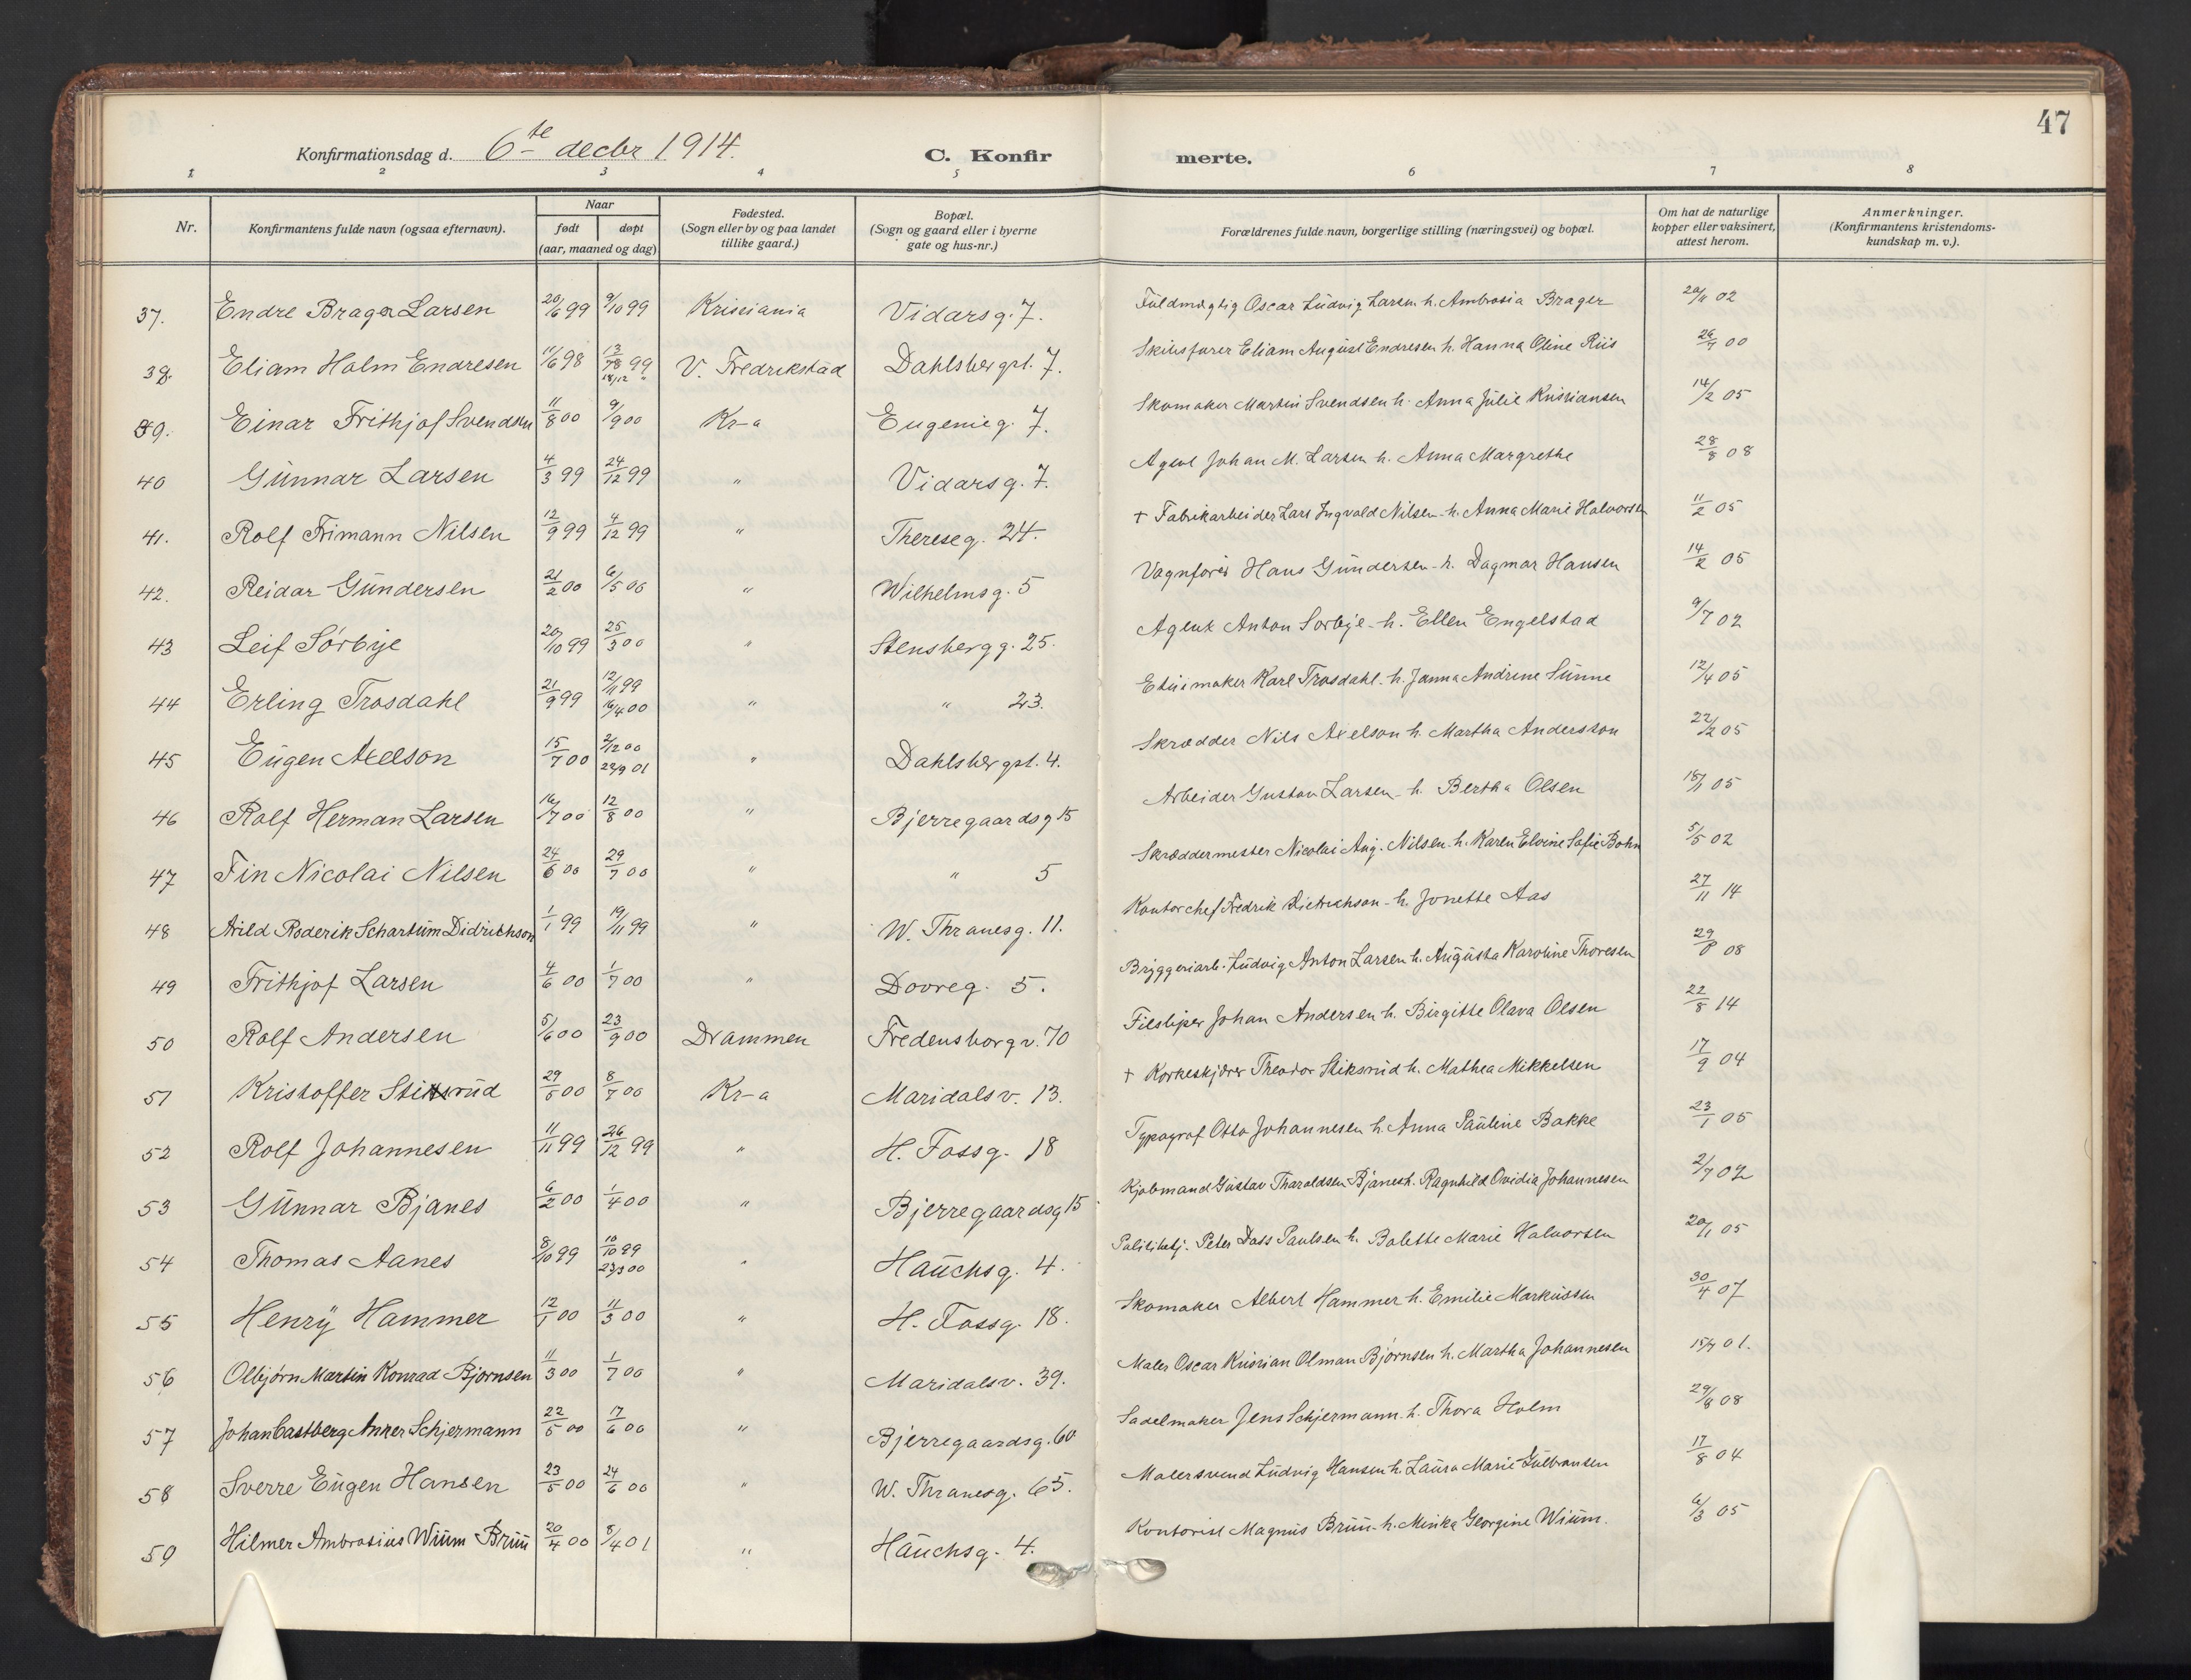 47
Konfirmationsdag d. 6te decbr 1914. C. Konfirmerte.
1 2 3 4 5 6 7 8
Nr. Konfirmantens fulde navn (ogsaa efternavn). Naar født døpt (aar, maaned og dag) Fødested. (Sogn eller by og paa landet tillike gaard.) Bopæl. (Sogn og gaard eller i byerne gate og hus-nr.) Forældrenes fulde navn, borgerlige stilling (næringsvei) og bopæl. Om hat de naturlige kopper eller vaksinert, attest herom. Anmerkninger. (Konfirmantens kristendomskundskap m. v.).
37. Endre Brager Larsen 20/6 99 9/10 99 Kristiania Vidarsg. 7. Fuldmægtig Oscar Ludvig Larsen h. Ambrosia Brager 02
38. Eliam Holm Endresen 11/6 98 18/12 " V. Fredrikstad Dahlsbergst. 7. Skibsfører Eliam August Endresen h. Hanna Oline Riis 00
39. Einar Frithjof Svendsen 11/8 00 9/9 00 Kr-a Eugenieg. 7. Skomaker Martin Svendsen h. Anna Julie Kristiansen 14/2 05
40 Gunnar Larsen 4/3 99 24/12 99 " Vidarsg. 7. Agent Johan M. Larsen h. Anna Margrethe 28/8 08
41. Rolf Frimann Nilsen 12/9 99 4/12 99 " Thereseg. 24. + Fabrikarbeider Lars Ingvald Nilsen h. Anna Marie Halvorsen 11/2 05
42. Reidar Gundersen 21/2 00 6/5 06 " Wilhelmsg. 5 Vognfører Hans Gundersen h. Dagmar Hansen 14/2 05
43 Leif Sörbye 20/10 99 25/3 00 " Stensbergg. 25. Agent Anton Sorbye h. Ellen Engelstad 9/7 02
44 Erling Trosdahl 21/9 99 12/11 99 16/4 00 " " 23. Etuismaker Karl Trosdahl h. Janna Andrine Sunne 12/4 05
45 Eugen Axelson 15/7 00 2/12 00 22/9 01 " Dahlsbergst. 4. Skrædder Nils Axelson h. Martha Andersson 22/2 05
46 Rolf Herman Larsen 16/7 00 12/8 00 " Bjerregaardsg 15 Arbeider Gustav Larsen h. Bertha Olsen 18/1 05
47 Fin Nicolai Nilsen 24/6 00 29/7 00 " " 5 Skræddermester Nicolai Aug. Nilsen h. Karen Elvine Sofie Bohn 5/5 02
48 Arild Roderik Schartum Didrichson 1/1 99 19/11 99 " W. Thranesg. 11. Kontorchef Fredrik Dietrichson h. Jonette Aas 27/11 14
49 Frithjof Larsen 4/6 00 1/7 00 " Dovreg. 5. Bryggeriarb. Ludvig Anton Larsen h. Augusta Karoline Thoresen 08
50 Rolf Andersen 5/6 00 23/9 00 Drammen Fredensborgv. 70 Filsliper Johan Andersen h. Birgitte Olava Olsen 22/8 14
51 Kristoffer Stiksrud 29/5 00 8/7 00 Kr-a Maridalsv. 13. + Korkeskjærer Theodor Stiksrud h. Mathea Mikkelsen 17/9 04
52 Rolf Johannesen 11/11 99 26/12 99 " H. Fossg. 18 Typograf Otto Johannesen h. Anna Pauline Bakke 23/1 05
53 Gunnar Bjanes 6/2 00 1/4 00 " Bjerregaardsg 15 Kjøbmand Gustav Tharaldsen Bjanes h. Ragnhild Ovidia Johannesen 2/7 02
54 Thomas Aanes 8/10 99 10/10 99 23/3 00 " Hauchsg. 4. Politibetj. Peter Dass Paulsen h. Balette Marie Halvorsen 20/1 05
55 Henry Hammer 12/1 00 11/3 00 " H. Fossg. 18. Skomaker Albert Hammer h. Emilie Markussen 30/4 07
56 Olbjørn Martin Konrad Bjørnsen 11/3 00 1/7 00 " Maridalsv. 39. Maler Oscar Kristian Olman Bjørnsen h. Martha Johannesen 15/7 01.
57 Johan Castberg Anker Schjermann 22/5 00 17/6 00 " Bjerregaardsg. 60 Sadelmaker Jens Schjermann h. Thora Holm 29/8 08
58 Sverre Eugen Hansen 23/5 00 24/6 00 " W. Thranesg. 65. Malersvend Ludvig Hansen h. Laura Marie Gulbransen 17/8 04
59 Hilmer Ambrosius Wium Bruu 20/4 00 8/4 01 " Hauchsg. 4. Kontorist Magnus Bruu h. Minka Georgine Wium. 6/3 05